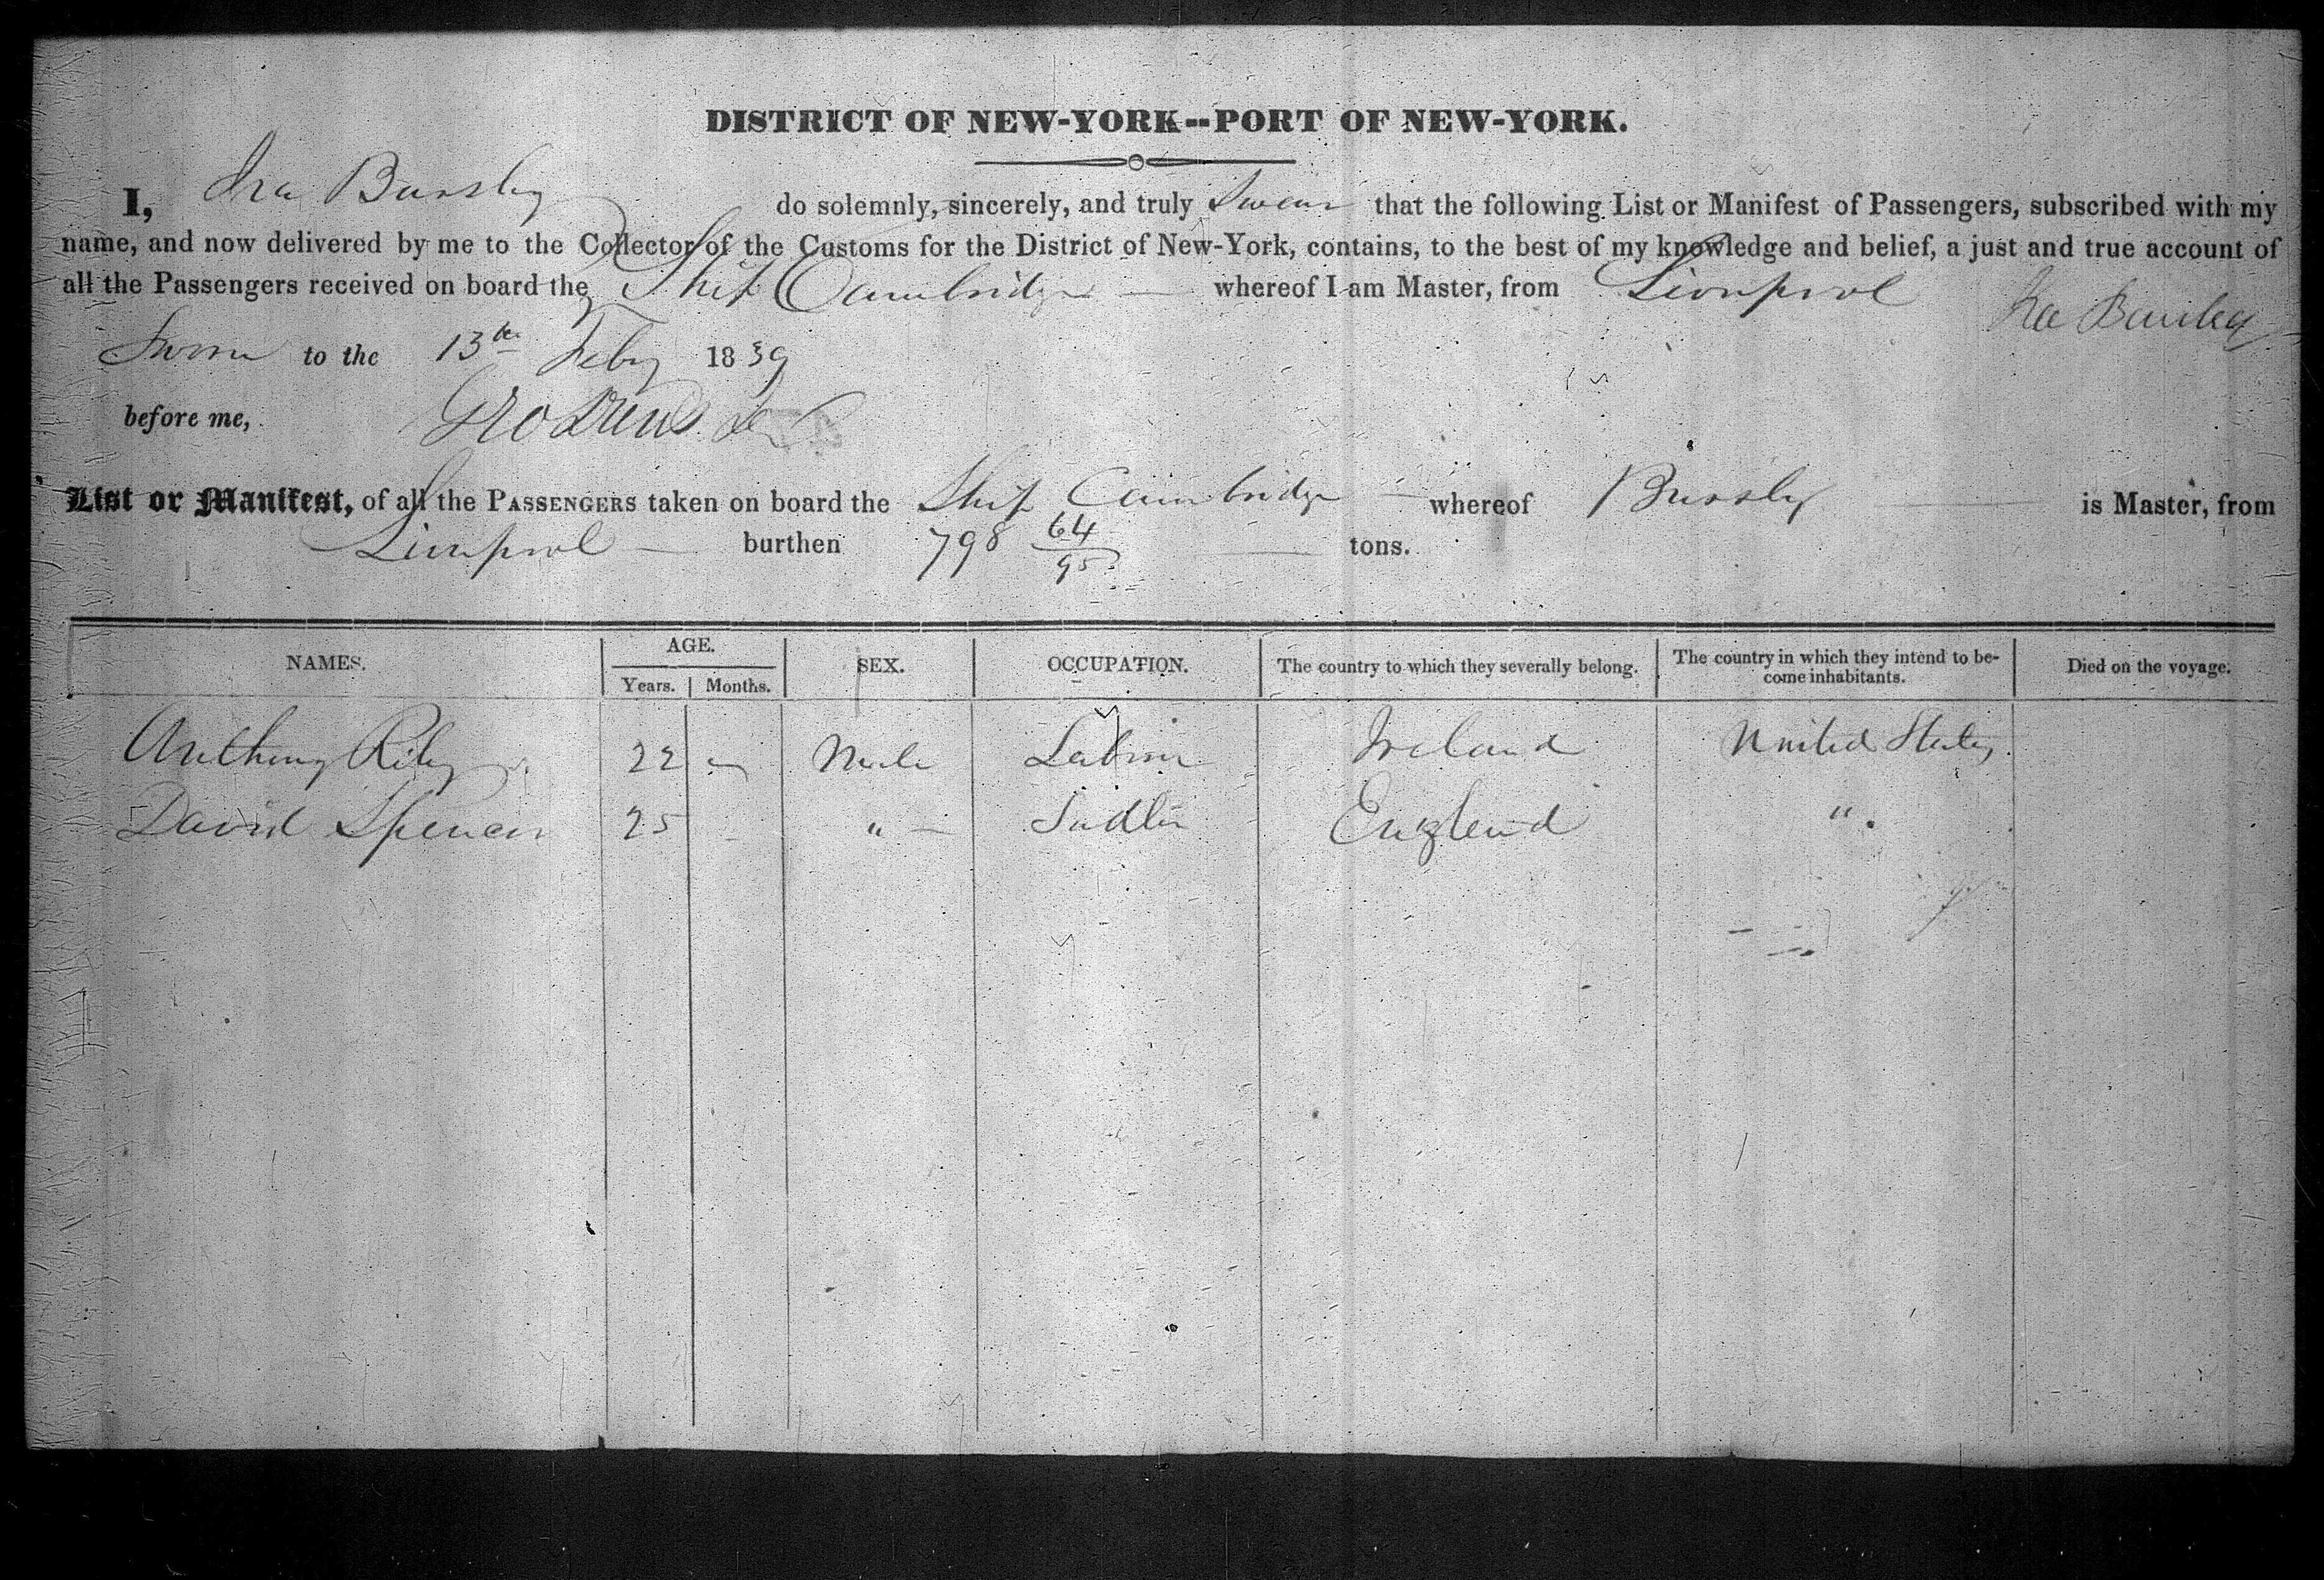 DISTRICT OF NEW-YORK--PORT OF NEW-YORK.
I, Ira Bursley do solemnly, sincerely, and truly Swear that the following List or Manifest of Passengers, subscribed with my
name, and now delivered by me to the Collector of the Customs for the District of New-York, contains, to the best of my knowledge and belief, a just and true account of
all the Passengers received on board the Ship Cambridge whereof I am Master, from Liverpool
Ira Bursley
Sworn to the 13th Feby 1839
before me,
List or Manifest, of all the PASSENGERS taken on board the Ship Cambridge whereof Bursley is Master, from
Liverpool burthen 798 64/95 tons.
NAMES. AGE. SEX. OCCUPATION. The country to which they severally belong. The country in which they intend to be-
come inhabitants. Died on the voyage.
Years. Months.
Anthony Riley 22 Male Labour Ireland United States
David Spencer 25 " Sadler England "